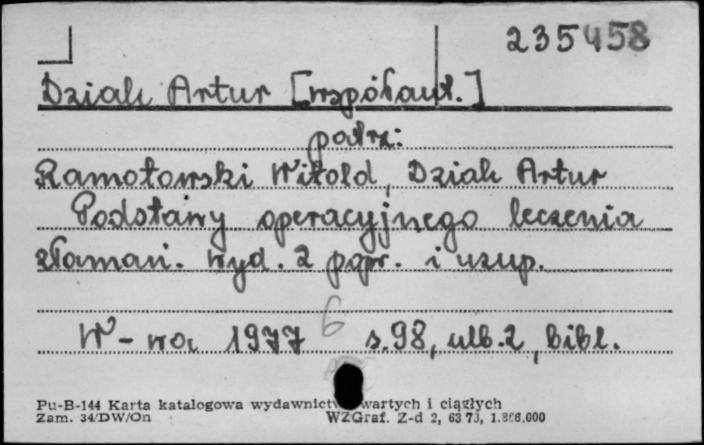 235458
Dziak Artur [współaut.]
patrz:
Ramotowski Witold, Dziak Artur
Podstawy operacyjnego leczenia
złamań. Wyd. 2 popr. i uzup.
W-wa 1977 6 s. 98, ulb. 2, bibl.
Pu-B-144 Karta katalogowa wydawnictw zwartych i ciągłych
Zam. 34/DW/On WZGraf. Z-d 2, 63 73, 1.866,000